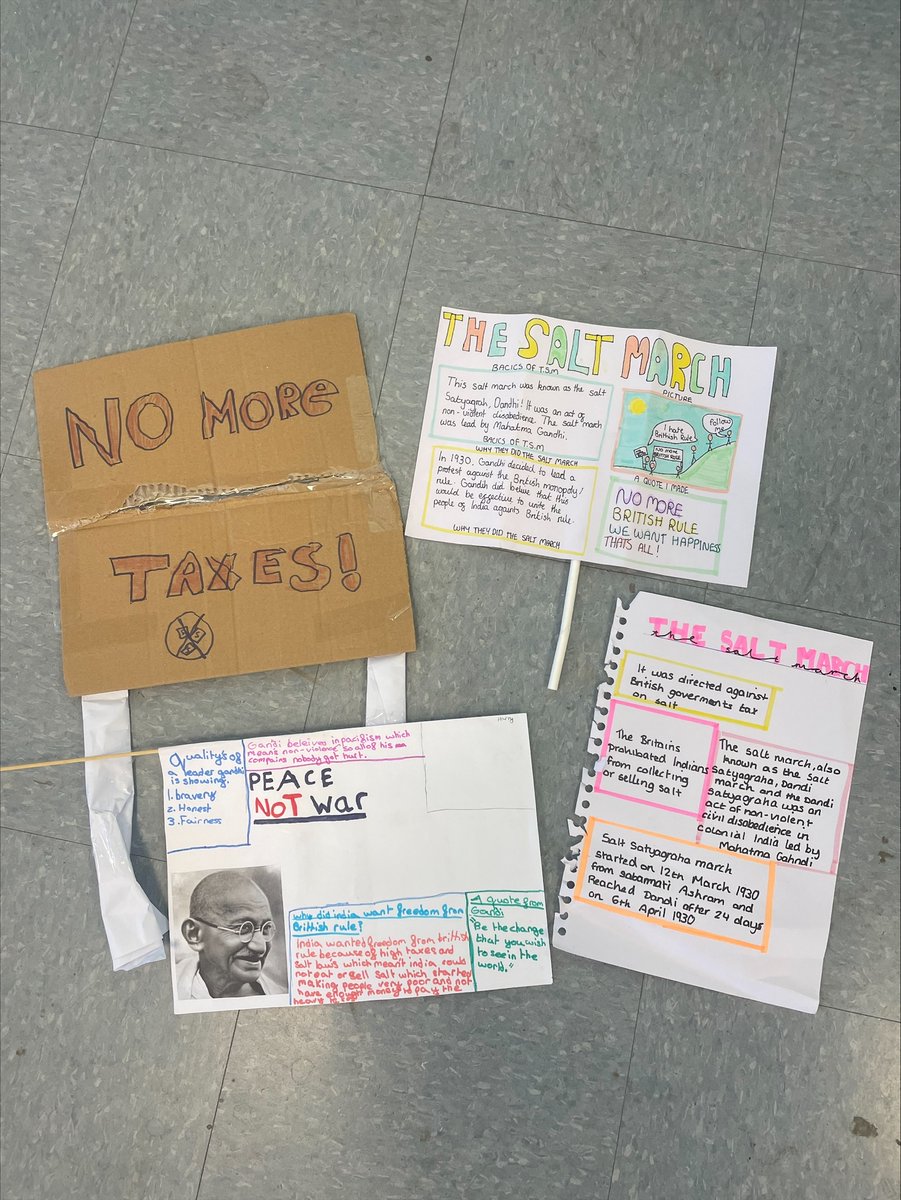 NO MORE
TAXES!
THE SALT MARCH
BACICS OF T.S.M
This salt march was known as the salt
Satyagrah, Dandhi! It was an act of
non-violent disobedience. The salt march
was lead by Mahatma Gandhi.
BACICS OF T.S.M
WHY THEY DID THE SALT MARCH
In 1930, Gandhi decided to lead a
protest against the British monopoly/
rule. Gandih did belive that this
would be effective to unite the
people of India againts British rule.
WHY THEY DID THE SALT MARCH
PICTURE
I hate
British Rule
Follow
me
NO MORE
BRITISH RULE
A QUOTE I MADE
NO MORE
BRITISH RULE
WE WANT HAPPINESS
THATS ALL!
THE SALT MARCH
the salt march
It was directed against
British goverments tax
on salt
The Britains
prohibated Indians
from collecting
or selling salt
The salt march, also
known as the Salt
Satyagraha, Dandi
march and the Dandi
satyagraha was an
act of non-violent
civil disobedience in
colonial India led by
Mahatma Gahndi
Salt Satyagraha march
started on 12th March 1930
from sabamati Ashram and
Reached Dandi after 24 days
on 6th April 1930
Quality's of
a leader gandhi
is showing.
1. bravery
2. Honest
3. Fairness
Gandi beleives in pacifism which
means non-violence so all of his
compains nobody got hurt.
PEACE
NOT War
why did india want freedom from
Brittish rule?
India wanted freedom from brittish
rule because of high taxes and
salt laws which meant india could
not eat or sell salt which started
making people very poor and not
have enough money to pay the
heavy
A quote from
Gandi
"Be the change
that you wish
to see in the
world."